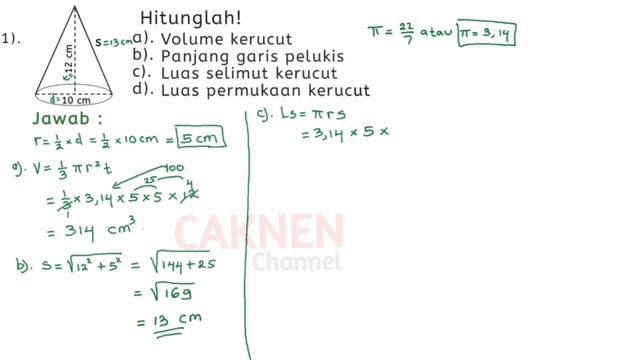 Hitunglah!
1). a). Volume kerucut
b). Panjang garis pelukis
c). Luas selimut kerucut
d). Luas permukaan kerucut
s = 13 cm
t = 12 cm
d = 10 cm
π = 22/7 atau π = 3,14
Jawab :
r = 1/2 × d = 1/2 × 10 cm = 5 cm
a). V = 1/3 π r² t
100
25 4
= 1/3 × 3,14 × 5 × 5 × 12
1
= 314 cm³
b). s = √12² + 5² = √144 + 25
= √169
= 13 cm
c). Ls = π r s
= 3,14 × 5 ×
CAKNEN
Channel